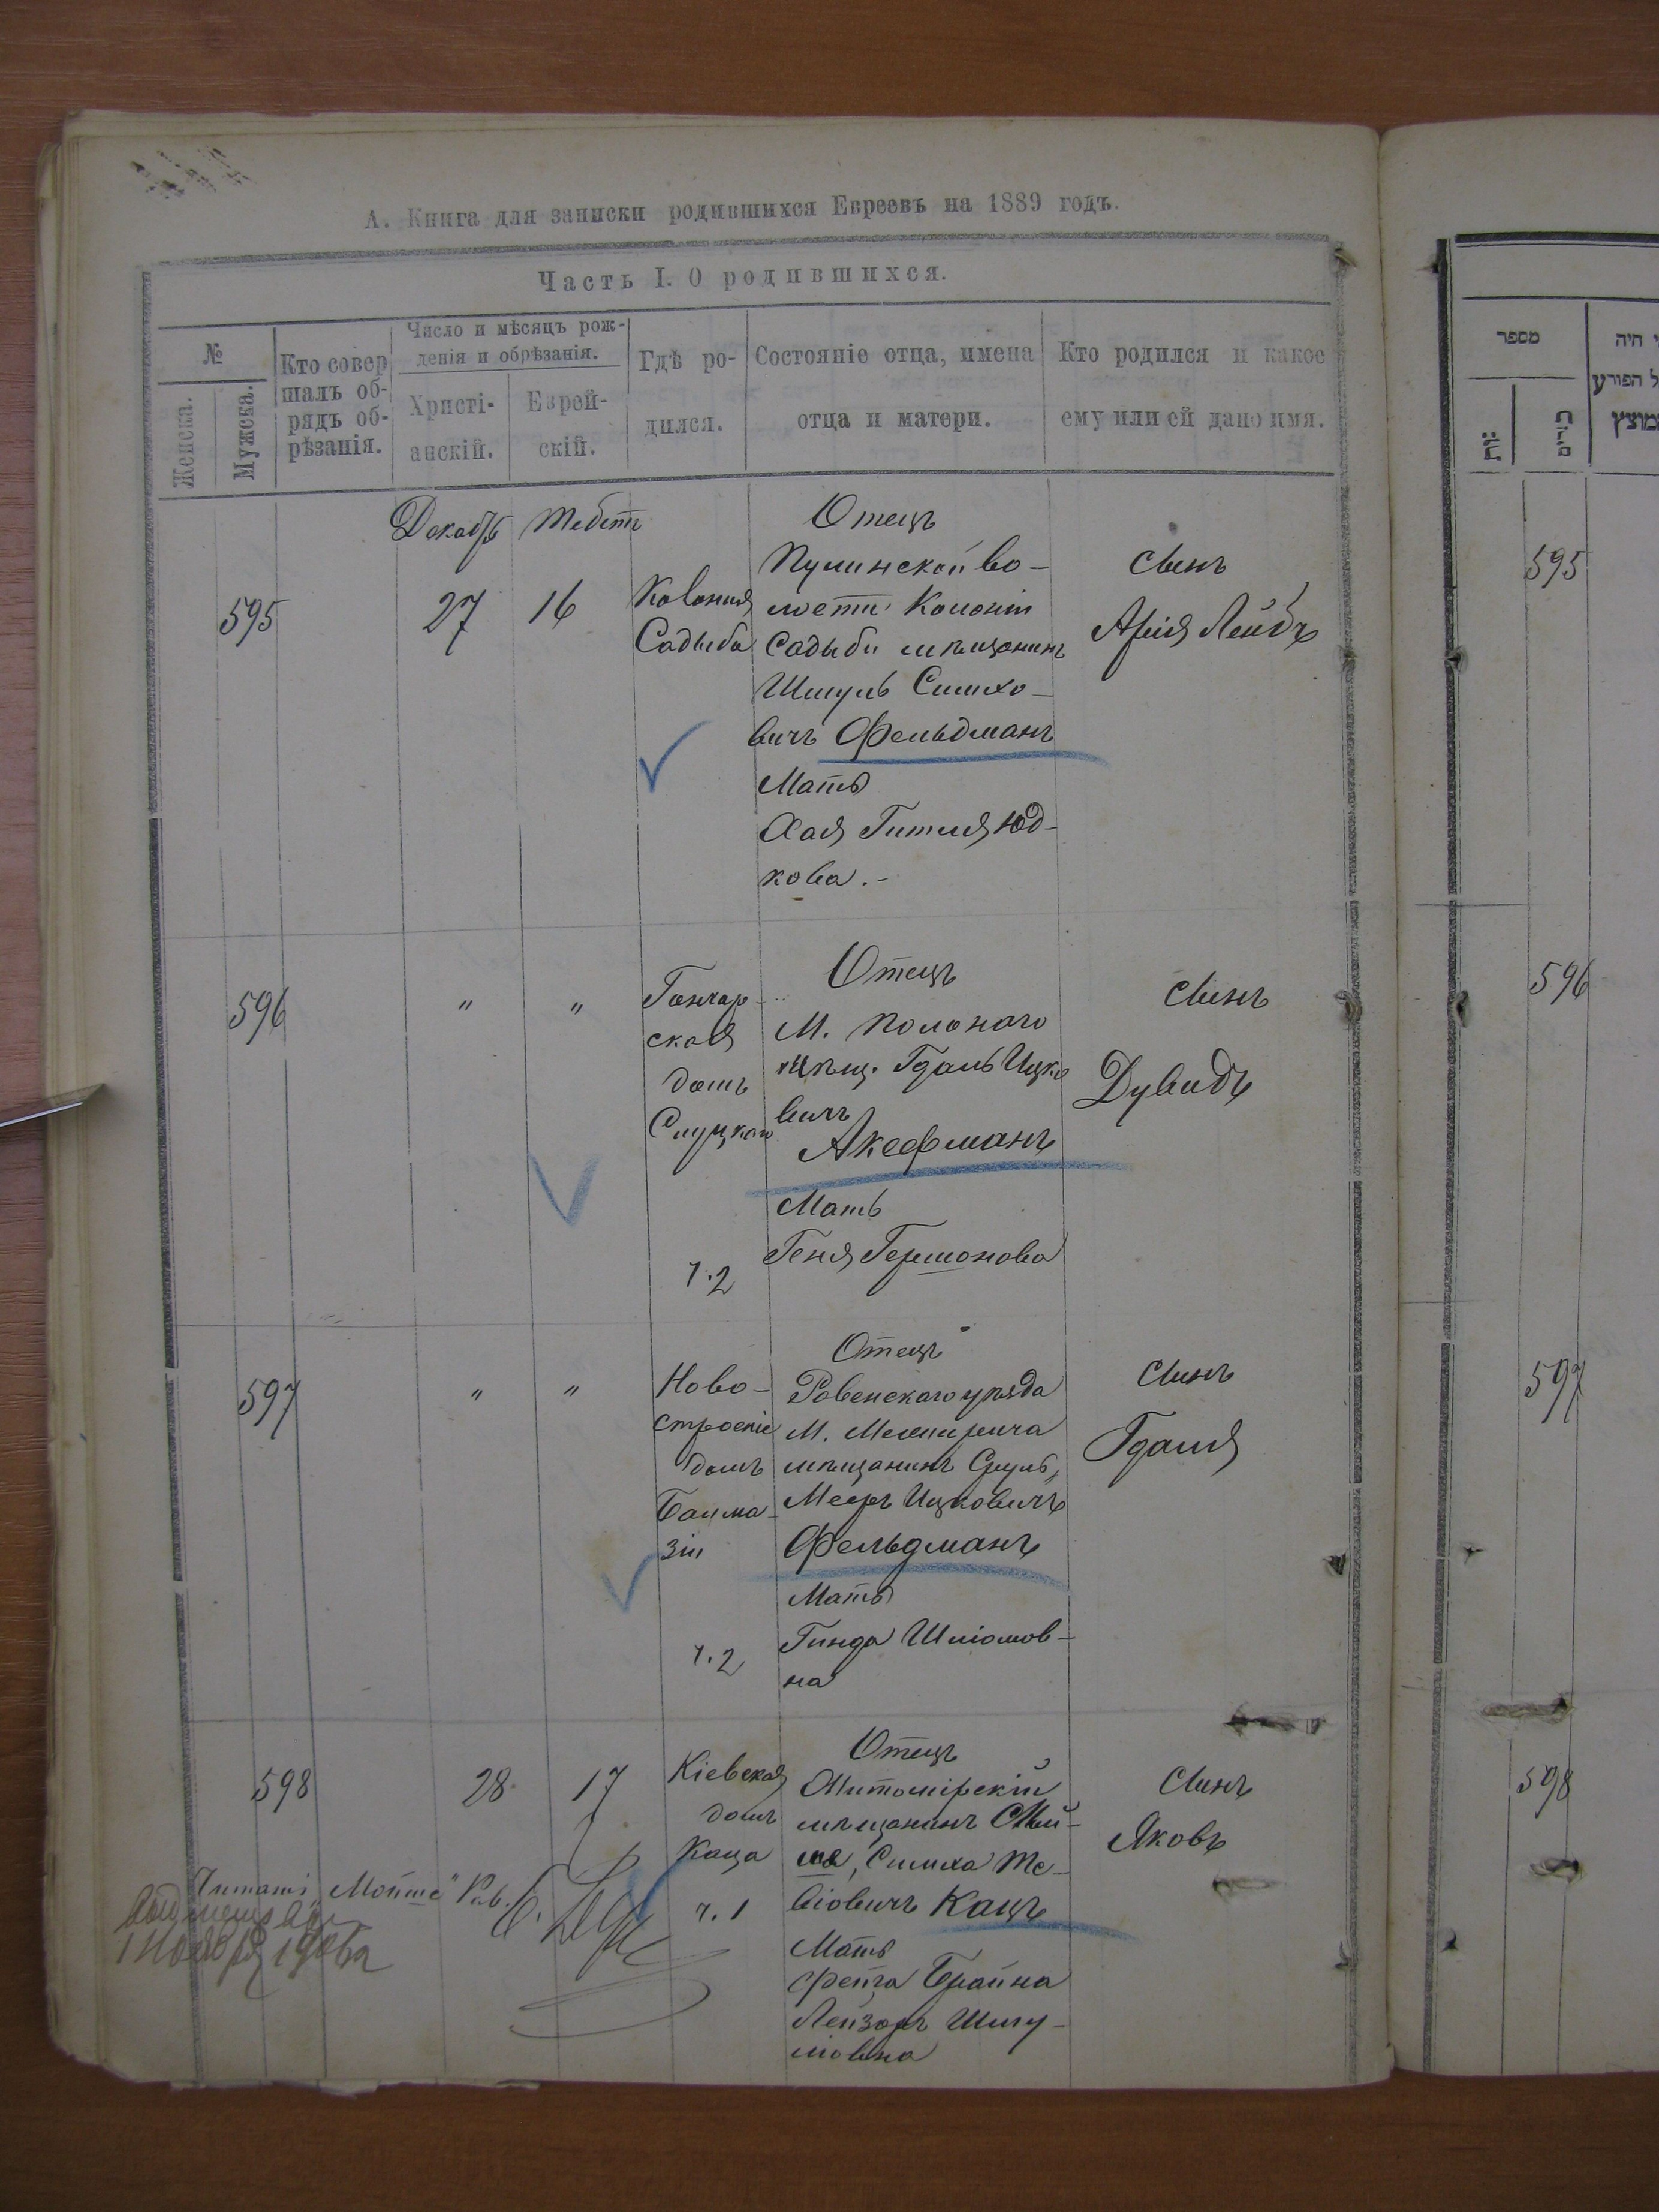 А. Книга для записки родившихся Евреевъ на 1889 годъ.
Часть I. О родившихся.
№
Женска.
Мужска.
Кто совер
шалъ об-
рядъ об-
рѣзанія.
Число и мѣсяцъ рож-
денія и обрѣзанія.
Христі-
анскій.
Еврей-
скій.
Гдѣ ро-
дился.
Состояніе отца, имена
отца и матери.
Кто родился и какое
ему или ей дано имя.
מספר
Декабрь Тебетъ
595
27
16
Колонія
Садыба
Отецъ
Пулинской во-
лости Колоніи
Садыби мѣщанинъ
Шмуль Симхо-
вичъ Фельдманъ
Мать
Хая Гитля Юд-
кова.-
Сынъ
Арія Лейбъ
595
596
"
"
Гончар-
ская
домъ
Слуцкаго
ч.2
Отецъ
М. Полонаго
мѣщ. Гдаль Ицко
вичъ
Акерманъ
Мать
Геня Гершонова
Сынъ
Дувидъ
596
597
"
"
Ново-
строеніе
домъ
ч.2
Отецъ
Ровенскаго уѣзда
М. Межирича
мѣщанинъ Сруль,
Мееръ Ицковичъ
Фельдманъ
Мать
Гинда Шліомов-
на
Сынъ
Гдаля
597
598
28
17
Кіевская
домъ
Каца
ч.1
Отецъ
Житомірскій
мѣщанинъ Мой-
ше, Симха Те-
віовичъ Кацъ
Мать
Фейга Брайна
Лейзоръ Шму-
ліовна
Сынъ
Яковъ
598
Читать „Мойше" Рав.